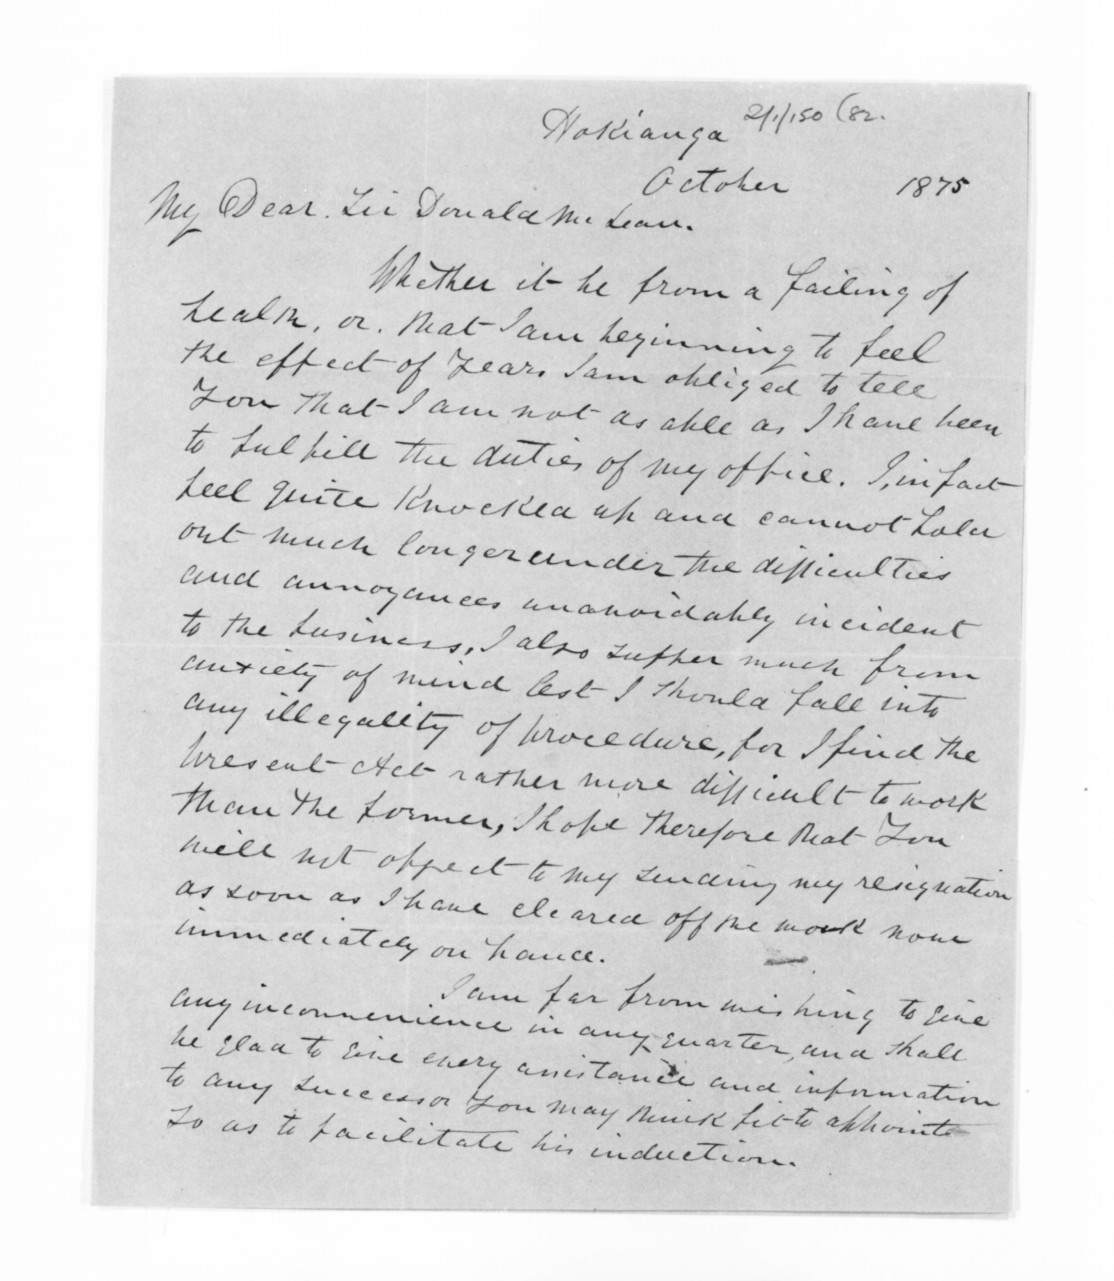 Hokianga
October 1875
My Dear Sir Donald McLean.
Whether it be from a failing of
health, or. that I am beginning to feel
the effect of Years I am obliged to tell
You that I am not as able as I have been
to fulfill the duties of my office. I, in fact
feel quite Knocked up and cannot hold
out much longer under the difficulties
and annoyances unavoidably incident
to the business, I also suffer much from
anxiety of mind lest I should fall into
any illegality of procedure, for I find the
present Act rather more difficult to work
than the former, I hope therefore that You
will not object to my sending my resignation
as soon as I have cleared off the work now
immediately on hand.
I am far from wishing to give
any inconvenience in any quarter, and shall
be glad to give every assistance and information
to any successor You may think fit to appoint
so as to facilitate his induction.